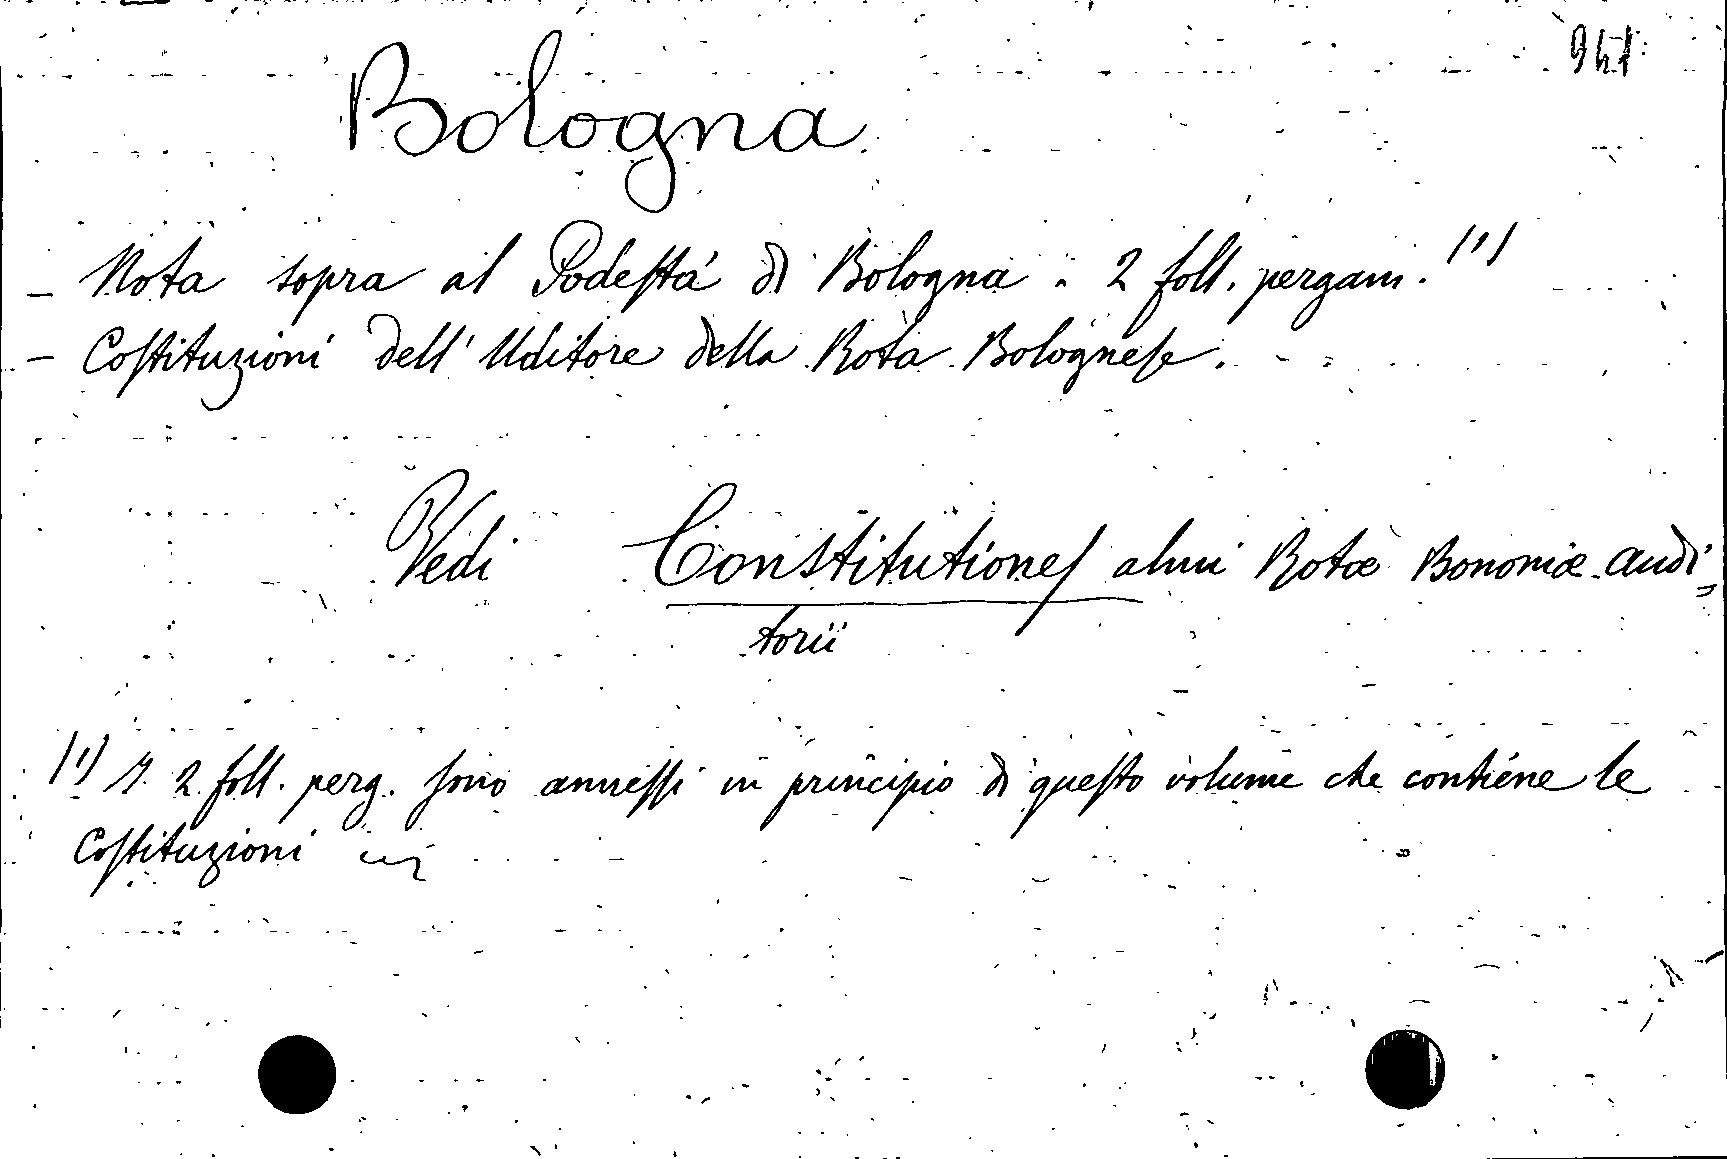 941
Bologna
- Nota sopra al Podestá di Bologna. 2 foll. pergam. (1)
- Costituzioni dell'Uditore della Rota Bolognese.
Vedi Constitutiones almi Rotæ Bononiæ audi=
torii
(1) I 2 foll. perg. sono annessi in principio di questo volume che contiene le
Costituzioni